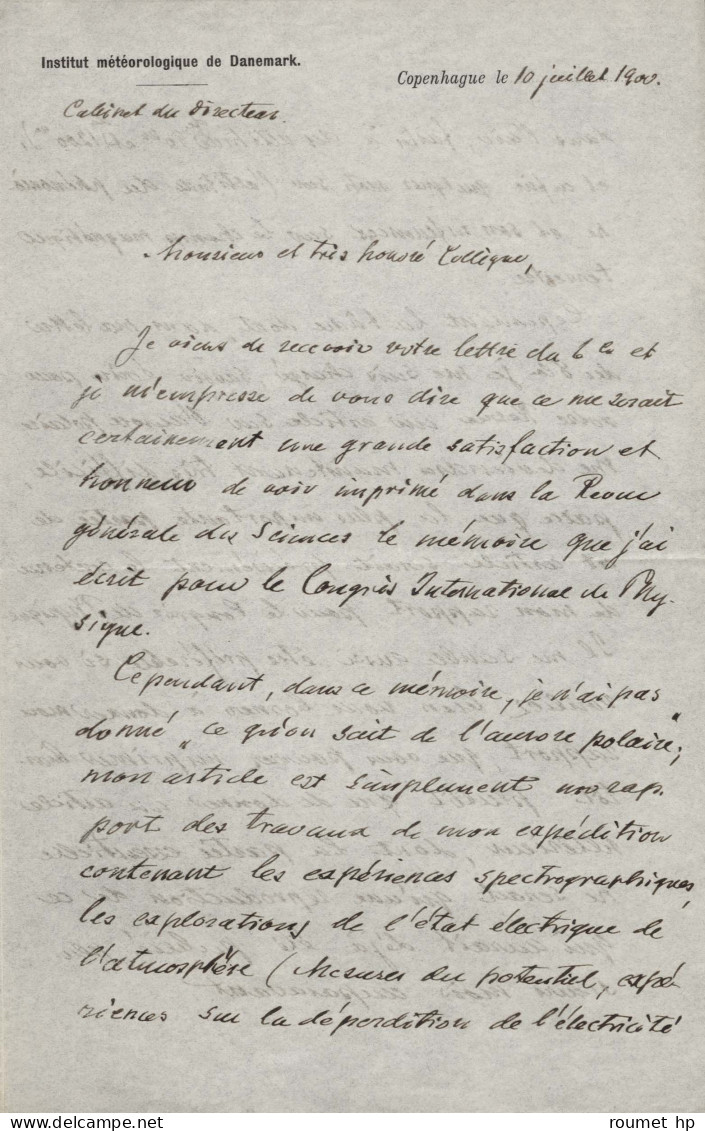 Institut météorologique de Danemark.
Copenhague le 10 juillet 1900.
Cabinet du Directeur.
Monsieur et très honoré Collègue,
Je viens de recevoir votre lettre du 6 et
je m'empresse de vous dire que ce me serait
certainement une grande satisfaction et
honneur de voir imprimé dans la Revue
générale des Sciences le mémoire que j'ai
écrit pour le Congrès International de Phy-
sique.
Cependant, dans ce mémoire, je n'ai pas
donné "ce qu'on sait de l'aurore polaire";
mon article est simplement un rap-
port des travaux de mon expédition
contenant les expériences spectrographiques,
les explorations de l'état électrique de
l'atmosphère (Mesures du potentiel, expé-
riences sur la déperdition de l'électricité
roumet hp